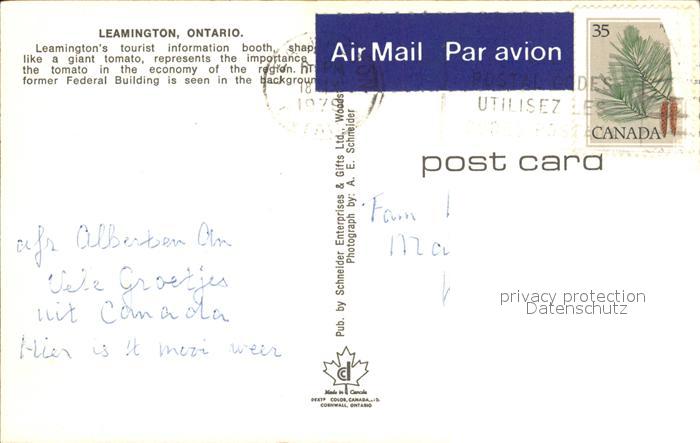 LEAMINGTON, ONTARIO.
Leamington's tourist information booth, shap
like a giant tomato, represents the importance
the tomato in the economy of the region.
former Federal Building is seen in the backgroun
Air Mail Par avion
35
CANADA
18
1979
POSTAL CODES
UTILISEZ LES
CODES POSTA
post card
Pub. by Schneider Enterprises & Gifts Ltd., Woodst
Photograph by: A. E. Schneider
Fam
Ma
afz Alberten An
Vele Groetjes
uit Canada
Hier is 't mooi weer
privacy protection
Datenschutz
Made in Canada
COLOR, CANADA
CORNWALL, ONTARIO